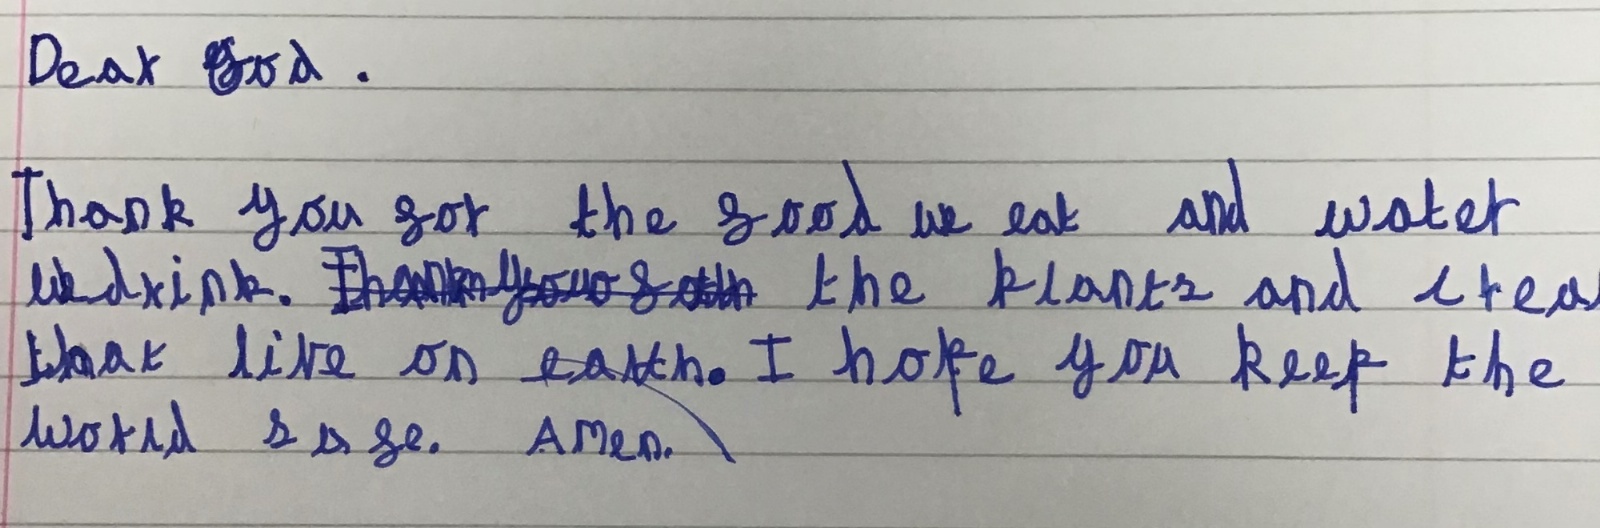 Dear God.
Thank you for the food we eat and water
we drink. the plants and crea
that live on earth. I hope you keep the
world safe. Amen.